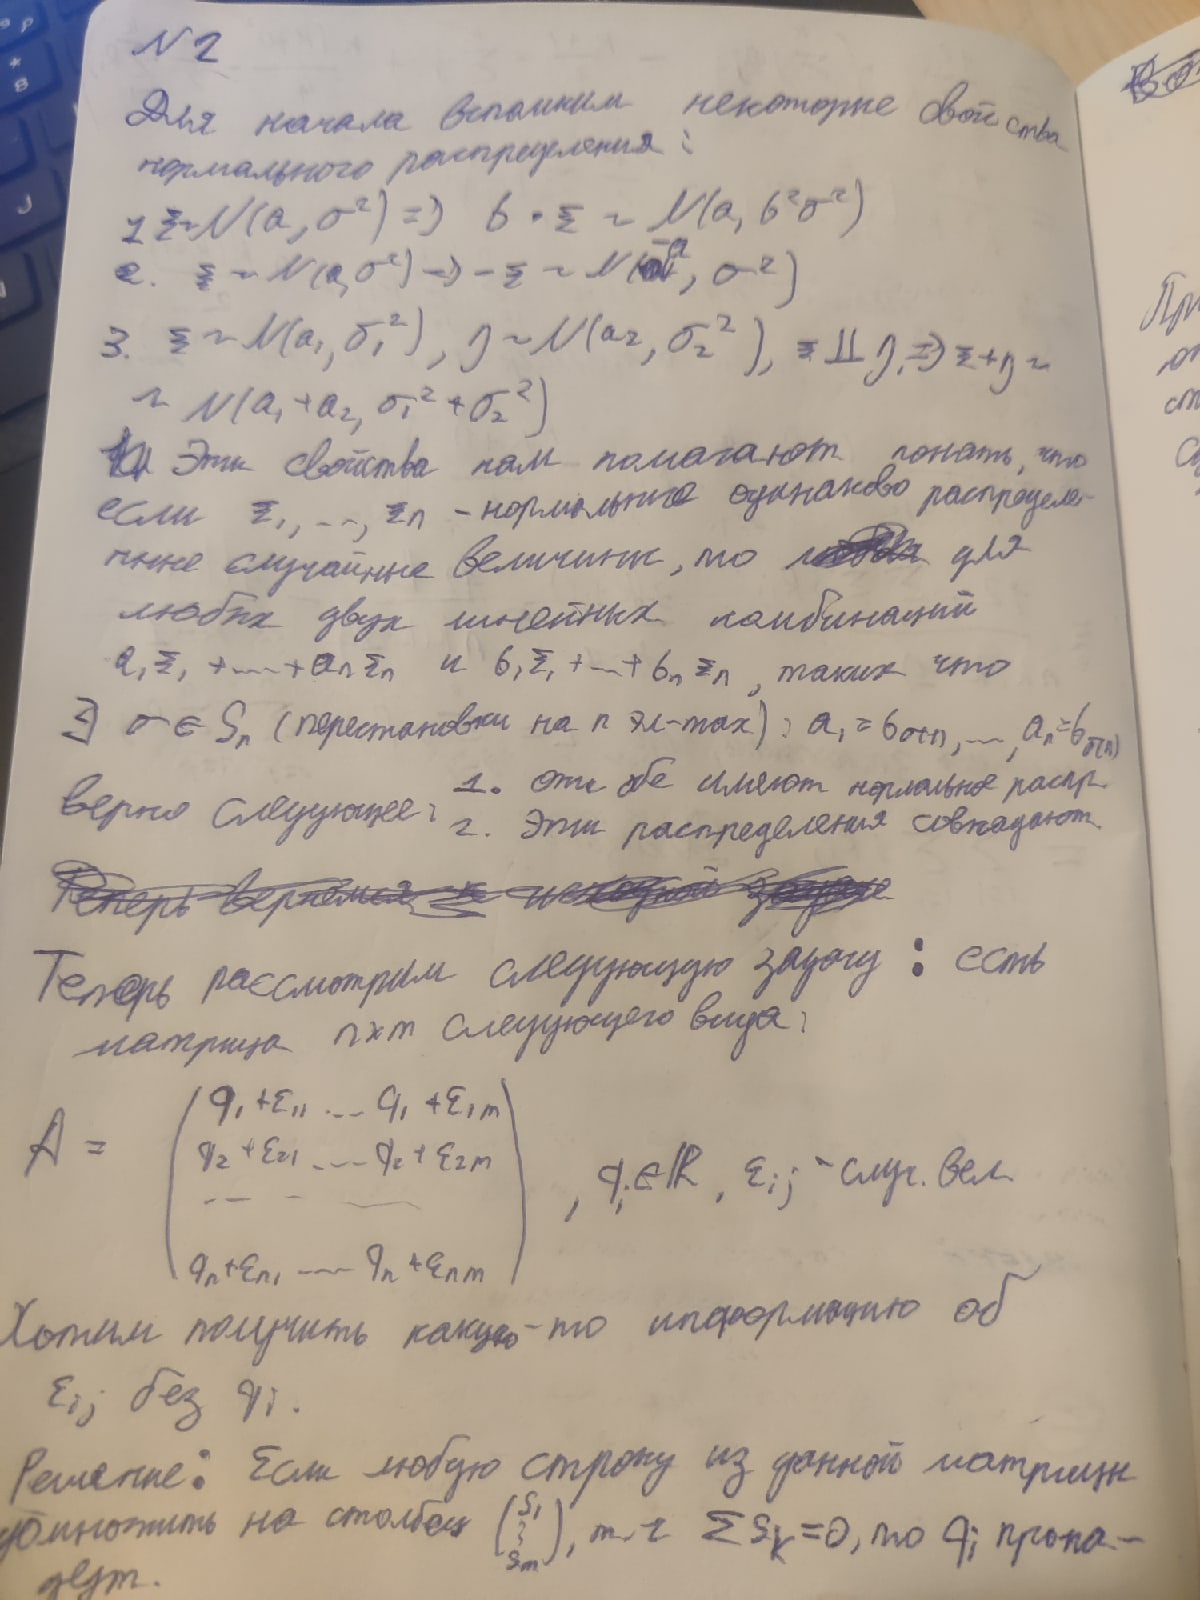 N2
Для начала вспомним некоторые свойства
нормального распределения:
1 ξ~N(a, σ²) => b · ξ ~ N(a, b²σ²)
2. ξ ~ N(a, σ²) => -ξ ~ N(-a, σ²)
3. ξ ~ N(a₁, σ₁²), η ~ N(a₂, σ₂²), ξ ⫫ η, => ξ+η ~
~ N(a₁+a₂, σ₁²+σ₂²)
Эти свойства нам помогают понять, что
если ξ₁, ..., ξn - нормальные одинаково распределе-
нные случайные величины, то для
любых двух линейных комбинаций
a₁ξ₁ +...+ anξn и b₁ξ₁ +...+ bnξn, таких что
∃ σ ∈ Sn (перестановки на n эл-тах): a₁ = bσ(1), ..., an = bσ(n)
верно следующее: 1. они обе имеют нормальное распр.
2. Эти распределения совпадают
Теперь вернемся к исходной задаче
Теперь рассмотрим следующую задачу: есть
матрица n×m следующего вида:
A = (q₁+ε₁₁ ... q₁+ε₁m
q₂+ε₂₁ ... q₂+ε₂m
... - ...
qn+εn₁ ... qn+εnm), qi∈ℝ, εij - случ. вел
Хотим получить какую-то информацию об
εij без qi.
Решение: Если любую строку из данной матрицы
домножить на столбец (s₁ ⋮ sm), т.ч Σsk=0, то qi пропа-
дут.